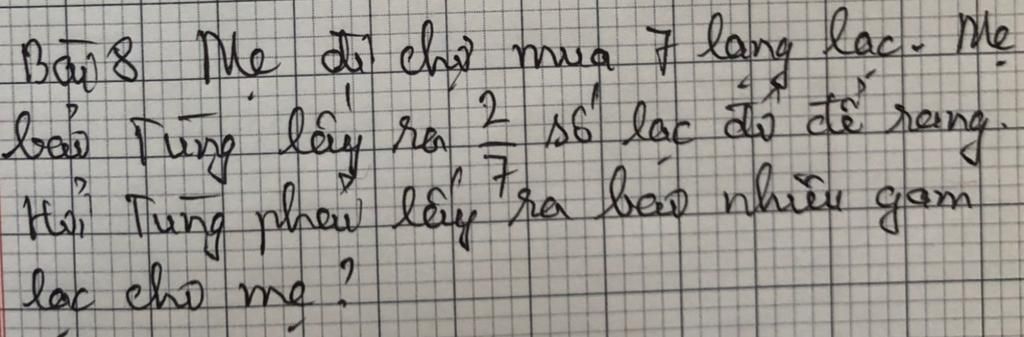 Bài 8 Mẹ đi chợ mua 7 lạng lạc. Mẹ
bảo Tùng lấy ra 2/7 số lạc đó để rang.
Hỏi Tùng phải lấy ra bao nhiêu gam
lạc cho mẹ?